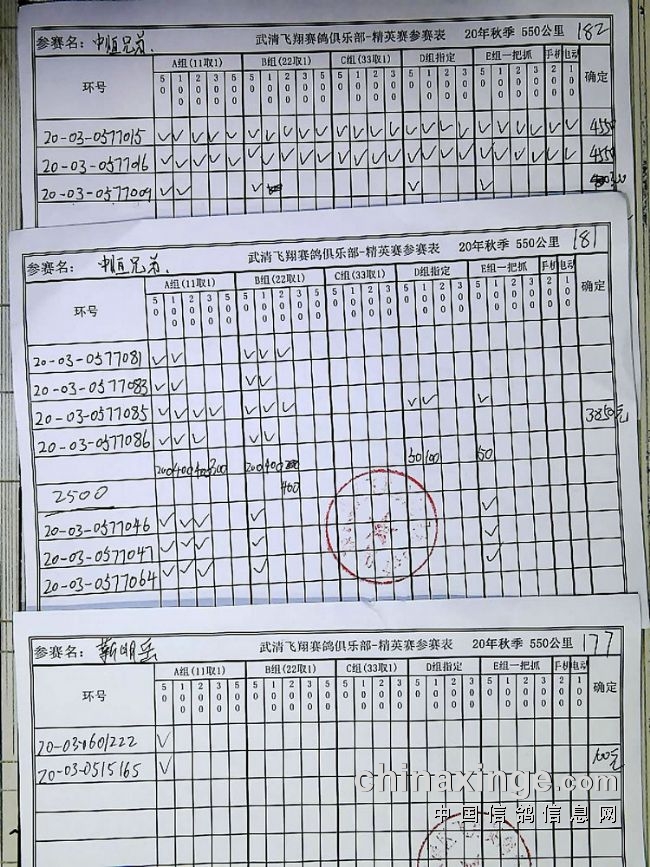 参赛名: 中恒兄弟. 武清飞翔赛鸽俱乐部-精英赛参赛表 20年秋季 550公里 182
环号 A组(11取1) B组(22取1) C组(33取1) D组指定 E组一把抓 手机 电动 确定
50 100 200 300 50 50 100 200 300 50 100 200 300 50 100 200 300 50 100 200 300 200 100
20-03-0577015 ✓ ✓ ✓ ✓ ✓ ✓ ✓ ✓ ✓ ✓ ✓ ✓ ✓ ✓ ✓ ✓ ✓ ✓ ✓ ✓ ✓ ✓ ✓ 4550
20-03-0577016 ✓ ✓ ✓ ✓ ✓ ✓ ✓ ✓ ✓ ✓ ✓ ✓ ✓ ✓ ✓ ✓ ✓ ✓ ✓ ✓ ✓ ✓ ✓ 4550
20-03-0577009 ✓ ✓ ✓ ✓ ✓
参赛名: 中恒兄弟. 武清飞翔赛鸽俱乐部-精英赛参赛表 20年秋季 550公里 181
环号 A组(11取1) B组(22取1) C组(33取1) D组指定 E组一把抓 手机 电动 确定
50 100 200 300 50 50 100 200 300 50 100 200 300 50 100 200 300 50 100 200 300 200 100
20-03-0577081 ✓ ✓ ✓ ✓ ✓
20-03-0577083 ✓ ✓ ✓ ✓
20-03-0577085 ✓ ✓ ✓ ✓ ✓ ✓ ✓ ✓ ✓ ✓ 3850元
20-03-0577086 ✓ ✓ ✓ ✓ ✓
200 400 400 300 200 400 50 100 50
2500 400
20-03-0577046 ✓ ✓ ✓ ✓ ✓
20-03-0577047 ✓ ✓ ✓ ✓ ✓
20-03-0577064 ✓ ✓ ✓ ✓ ✓
参赛名: 靳明岳 武清飞翔赛鸽俱乐部-精英赛参赛表 20年秋季 550公里 177
环号 A组(11取1) B组(22取1) C组(33取1) D组指定 E组一把抓 手机 电动 确定
50 100 200 300 50 50 100 200 300 50 100 200 300 50 100 200 300 50 100 200 300 200 100
20-03-0601222 ✓
20-03-0515165 ✓ 100元
chinaxinge.com
中国信鸽信息网